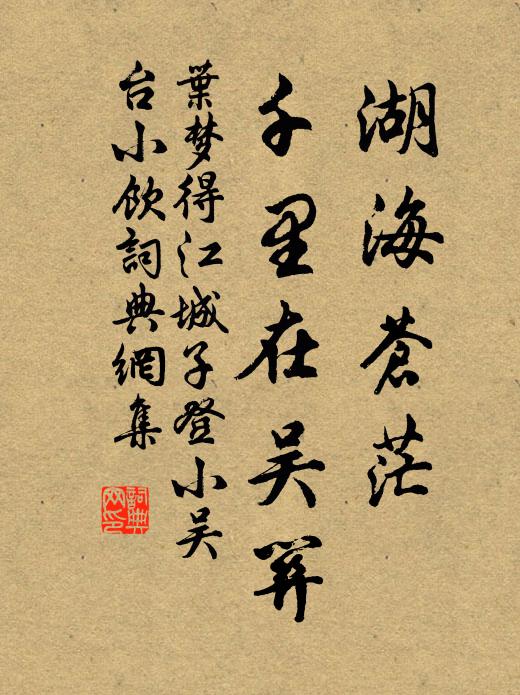 湖海蒼茫
千里在吴關
葉梦得江城子登小吴
台小飲詞典網集
詞典
网印